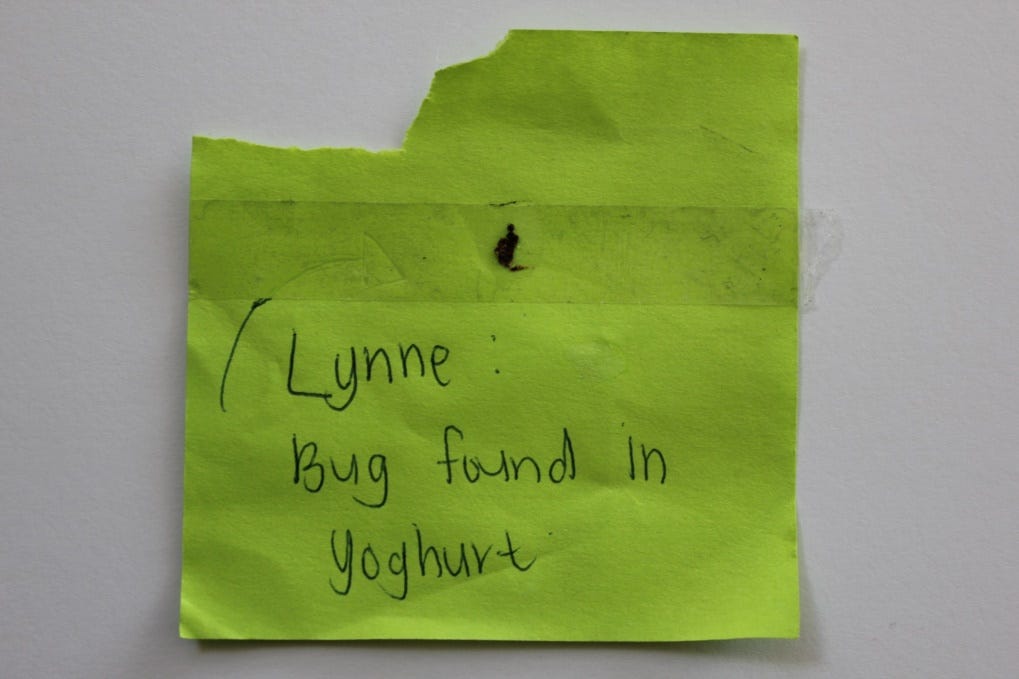 Lynne:
Bug found in
yoghurt